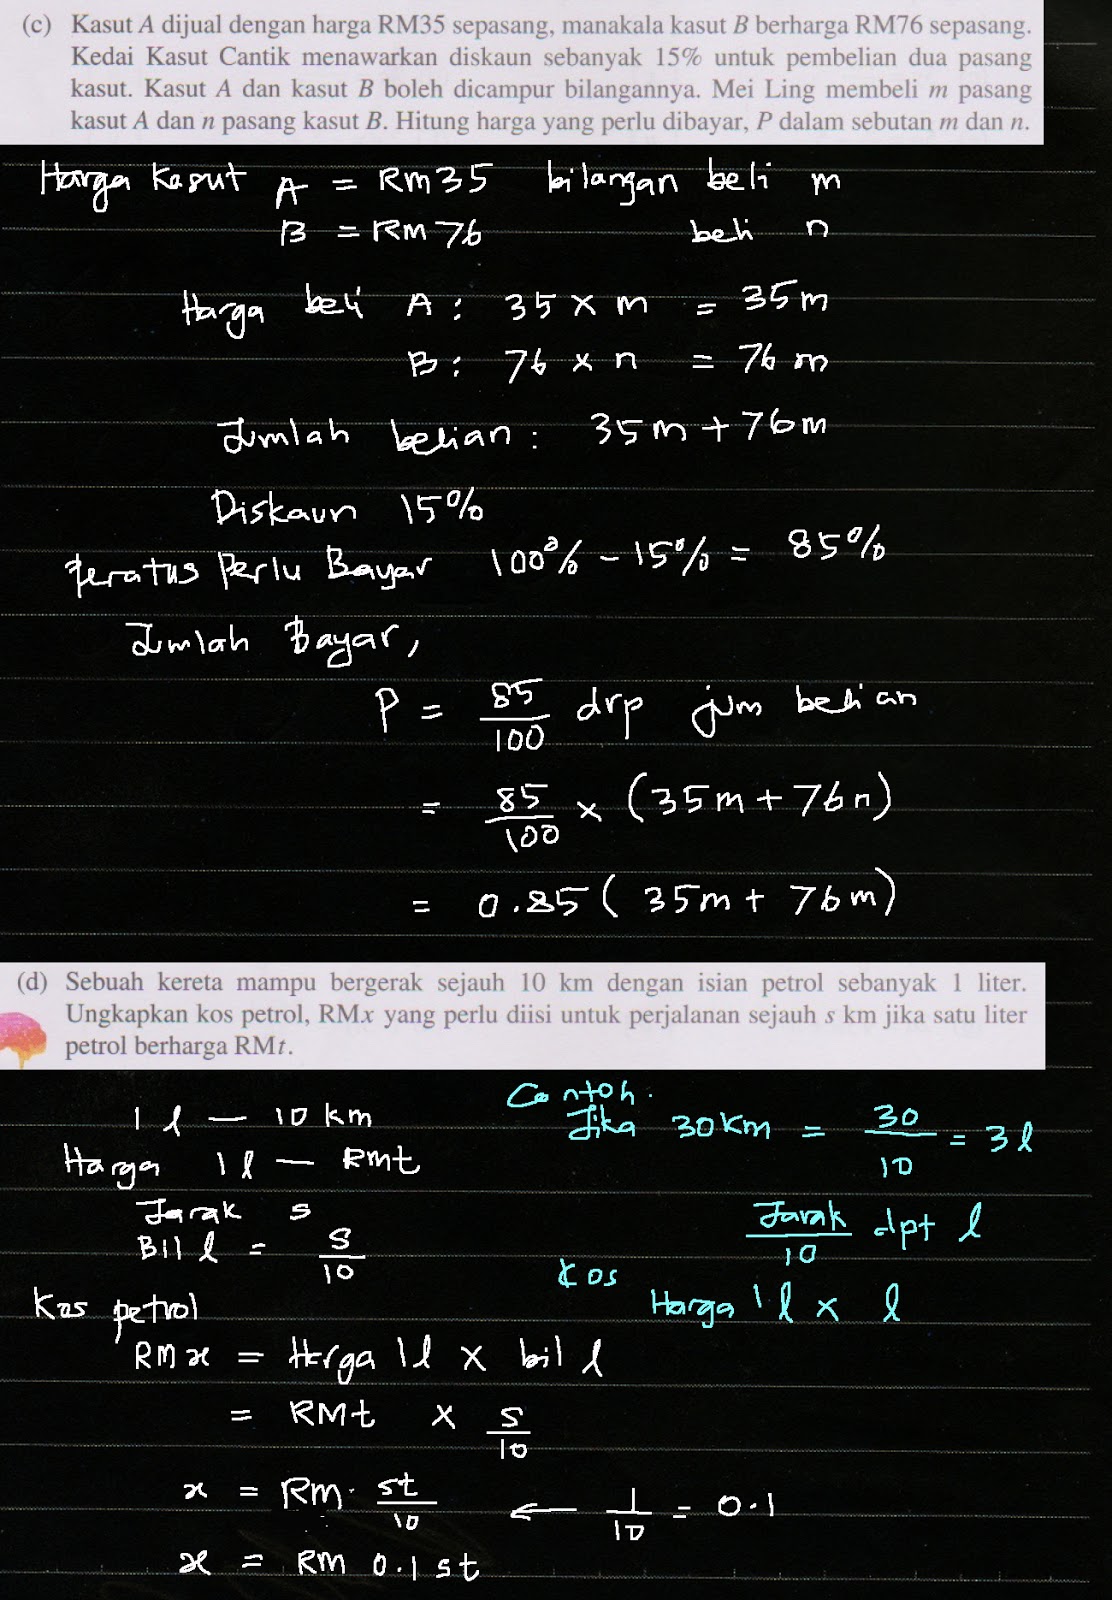 (c) Kasut A dijual dengan harga RM35 sepasang, manakala kasut B berharga RM76 sepasang.
Kedai Kasut Cantik menawarkan diskaun sebanyak 15% untuk pembelian dua pasang
kasut. Kasut A dan kasut B boleh dicampur bilangannya. Mei Ling membeli m pasang
kasut A dan n pasang kasut B. Hitung harga yang perlu dibayar, P dalam sebutan m dan n.
Harga Kasut A = RM35 bilangan beli m
B = RM 76 beli n
Harga beli A : 35 × m = 35m
B : 76 × n = 76 m
Jumlah belian : 35m + 76m
Diskaun 15%
Peratus Perlu Bayar 100% - 15% = 85%
Jumlah Bayar,
P = 85/100 drp jum belian
= 85/100 × (35m + 76n)
= 0.85 ( 35m + 76m)
(d) Sebuah kereta mampu bergerak sejauh 10 km dengan isian petrol sebanyak 1 liter.
Ungkapkan kos petrol, RMx yang perlu diisi untuk perjalanan sejauh s km jika satu liter
petrol berharga RMt.
1 l — 10 km
Harga 1 l — RMt
Jarak s
Bil l = s/10
Kos petrol
RM x = Harga 1 l × bil l
= RMt × s/10
x = RM st/10 ← 1/10 = 0.1
x = RM 0.1 st
Contoh.
Jika 30 KM = 30/10 = 3 l
Jarak/10 dpt l
Kos
Harga 1 l × l